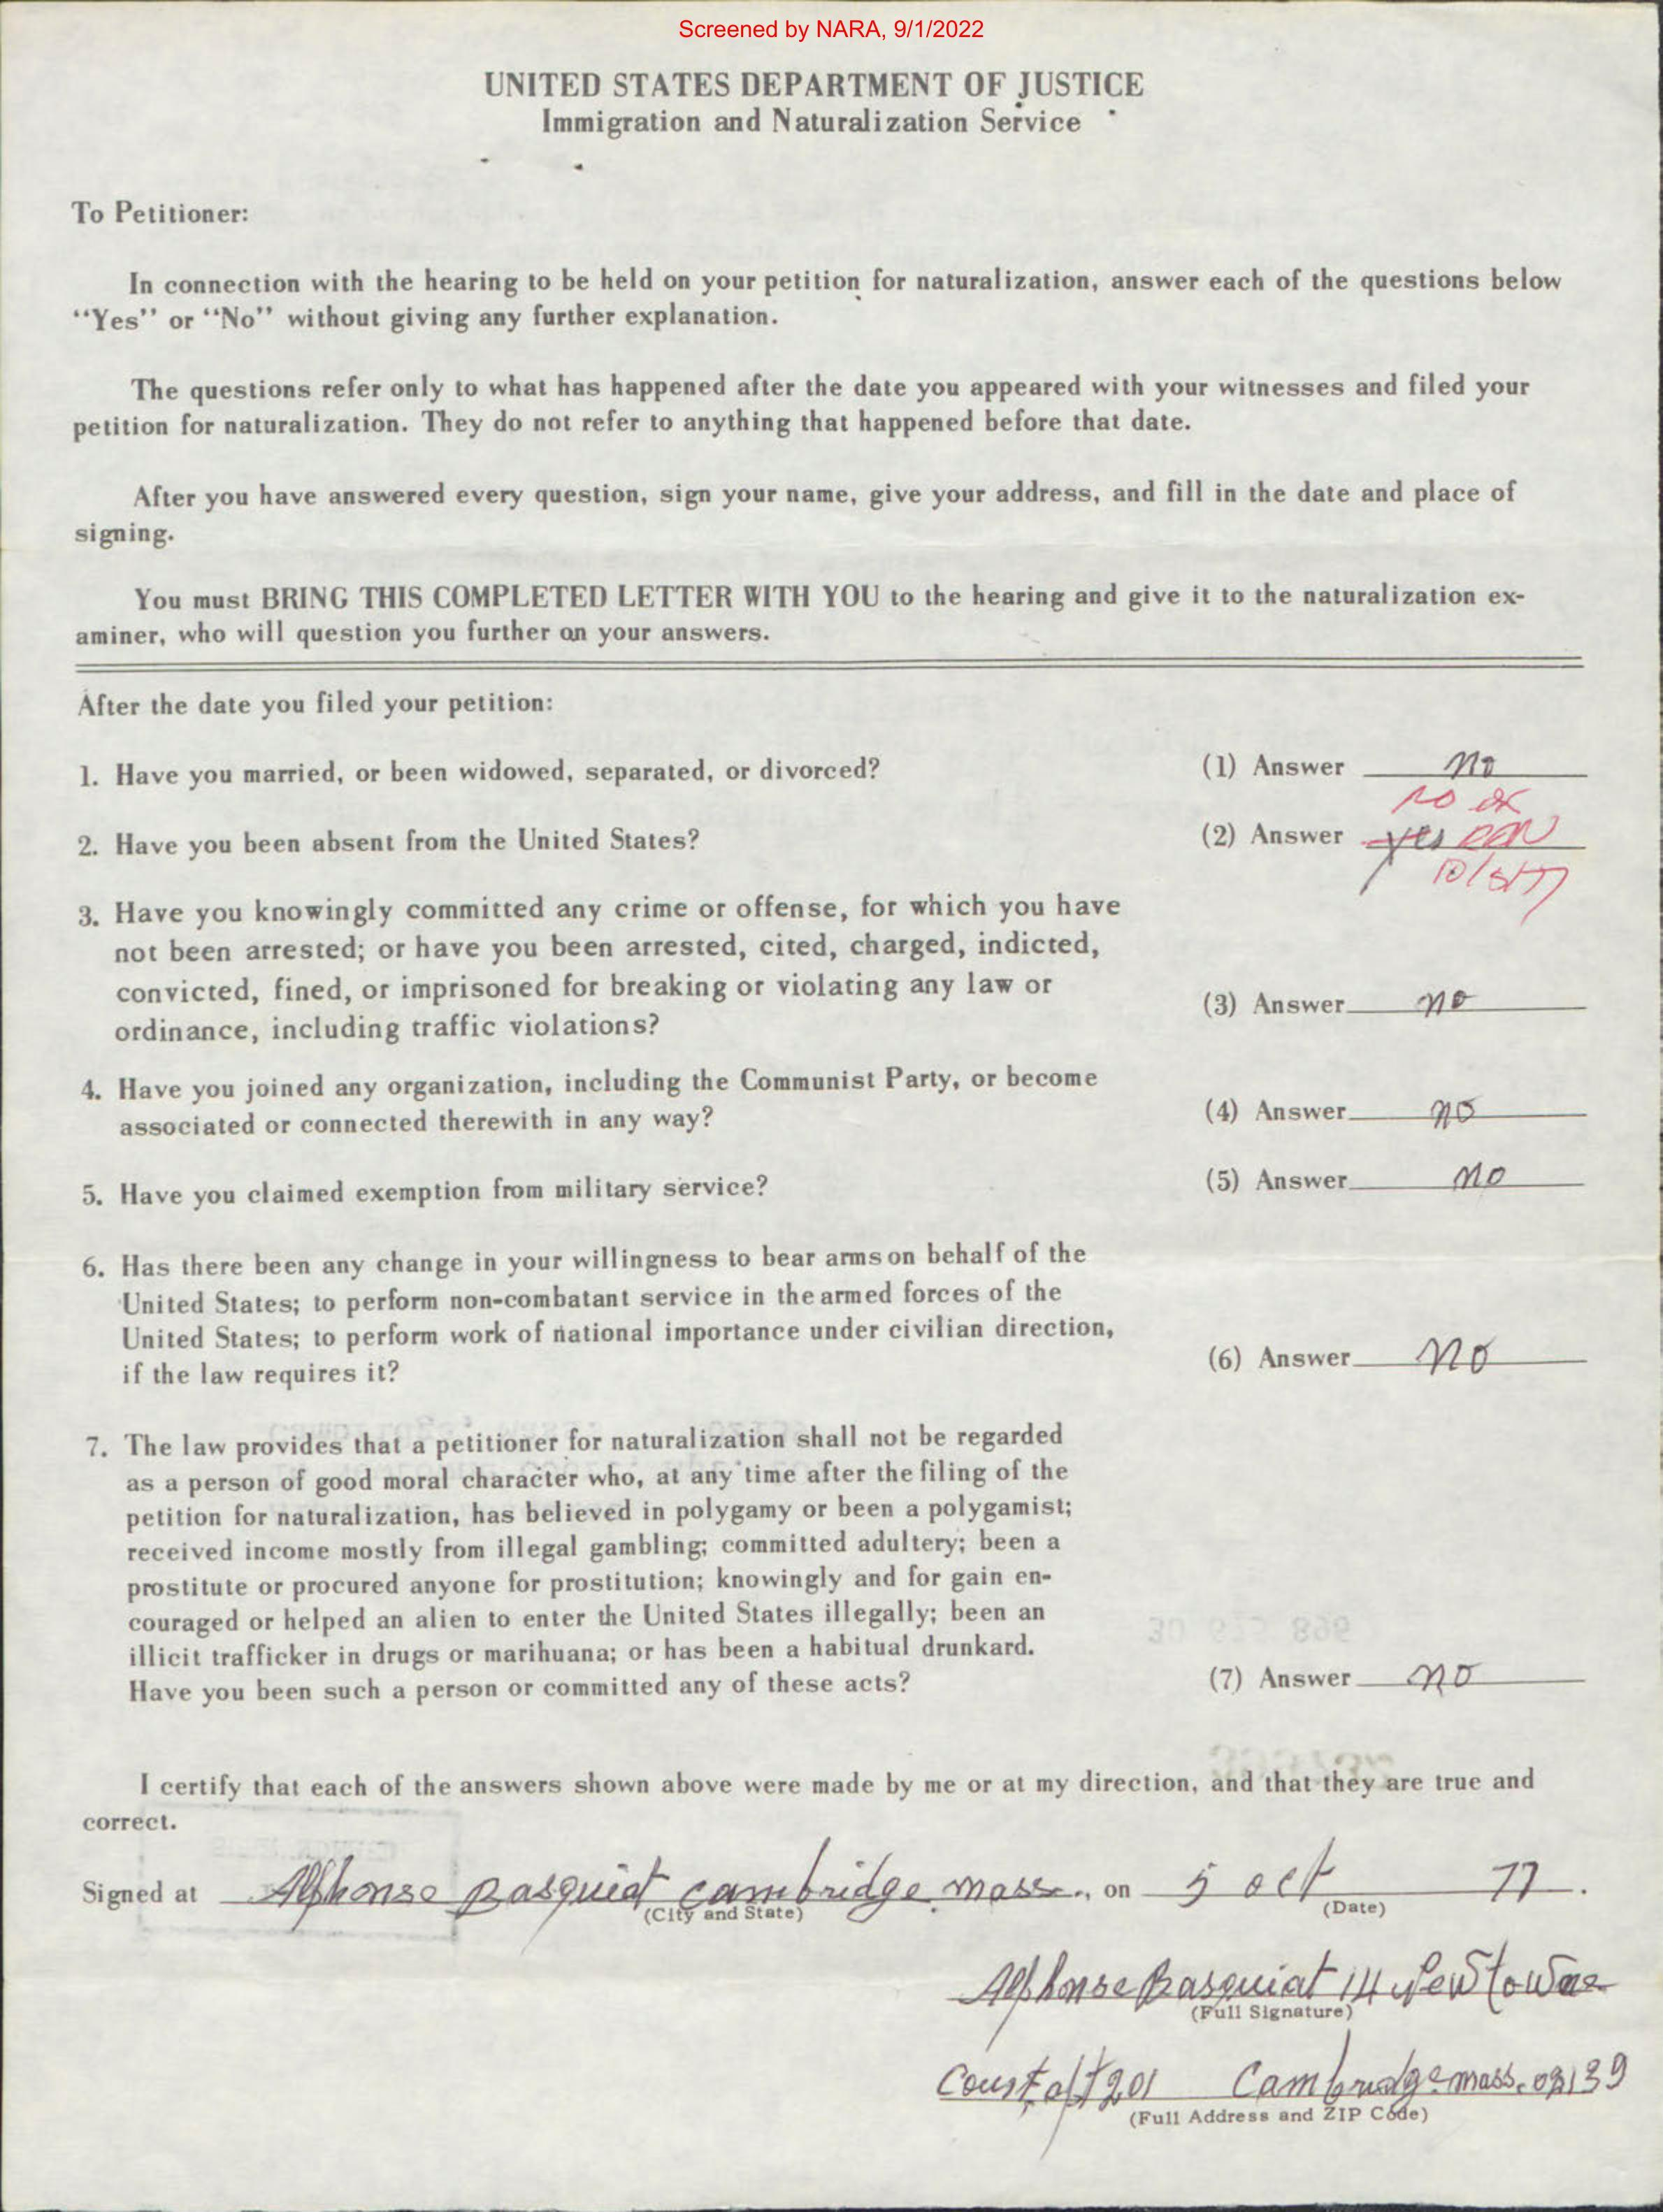 Screened by NARA, 9/1/2022
UNITED STATES DEPARTMENT OF JUSTICE
Immigration and Naturalization Service
To Petitioner:
In connection with the hearing to be held on your petition for naturalization, answer each of the questions below
"Yes" or "No" without giving any further explanation.
The questions refer only to what has happened after the date you appeared with your witnesses and filed your
petition for naturalization. They do not refer to anything that happened before that date.
After you have answered every question, sign your name, give your address, and fill in the date and place of
signing.
You must BRING THIS COMPLETED LETTER WITH YOU to the hearing and give it to the naturalization ex-
aminer, who will question you further on your answers.
After the date you filed your petition:
1. Have you married, or been widowed, separated, or divorced? (1) Answer no
no
2. Have you been absent from the United States? (2) Answer yes
10/5/77
3. Have you knowingly committed any crime or offense, for which you have
not been arrested; or have you been arrested, cited, charged, indicted,
convicted, fined, or imprisoned for breaking or violating any law or
ordinance, including traffic violations? (3) Answer no
4. Have you joined any organization, including the Communist Party, or become
associated or connected therewith in any way? (4) Answer no
5. Have you claimed exemption from military service? (5) Answer no
6. Has there been any change in your willingness to bear arms on behalf of the
United States; to perform non-combatant service in the armed forces of the
United States; to perform work of national importance under civilian direction,
if the law requires it? (6) Answer no
7. The law provides that a petitioner for naturalization shall not be regarded
as a person of good moral character who, at any time after the filing of the
petition for naturalization, has believed in polygamy or been a polygamist;
received income mostly from illegal gambling; committed adultery; been a
prostitute or procured anyone for prostitution; knowingly and for gain en-
couraged or helped an alien to enter the United States illegally; been an
illicit trafficker in drugs or marihuana; or has been a habitual drunkard.
Have you been such a person or committed any of these acts? (7) Answer no
I certify that each of the answers shown above were made by me or at my direction, and that they are true and
correct.
Signed at Alphonse Basquiat cambridge mass., on 5 oct 77.
(City and State) (Date)
Alphonse Basquiat 14 Newtowne
(Full Signature)
Court apt 201 Cambridge mass. 02139
(Full Address and ZIP Code)